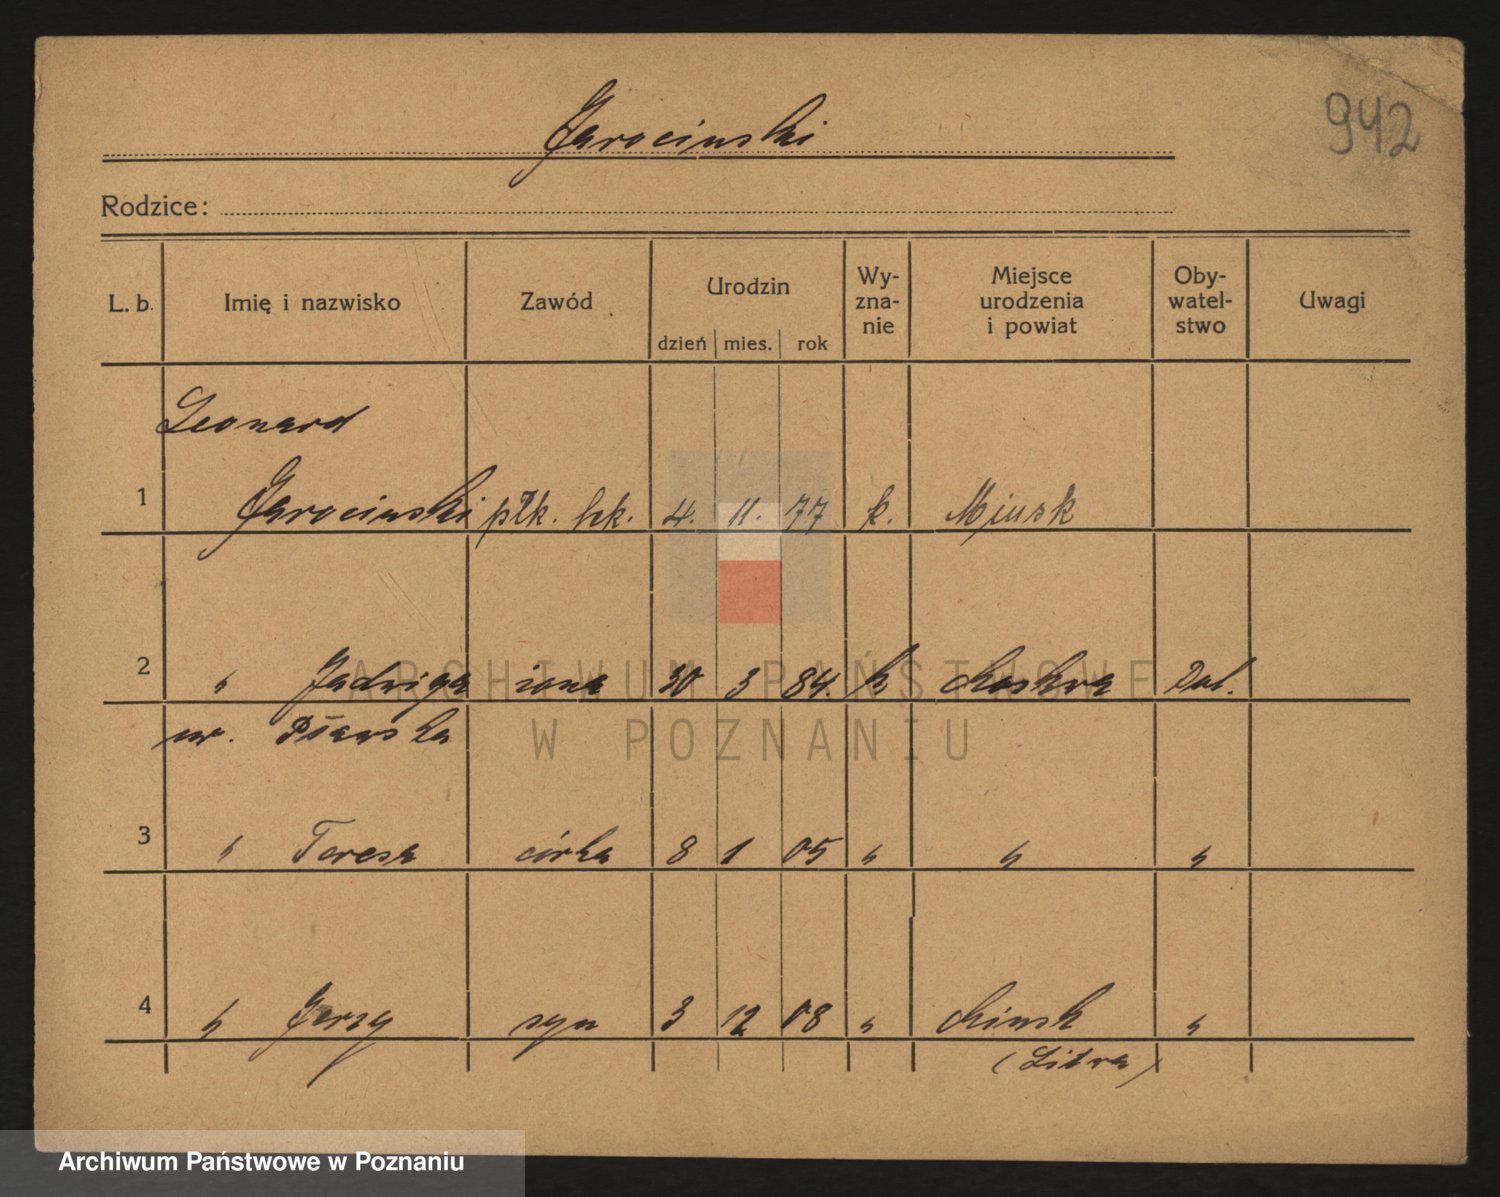 942
Jarocinski
Rodzice:
L. b. Imię i nazwisko Zawód Urodzin dzień mies. rok Wy-zna-nie Miejsce urodzenia i powiat Oby-watel-stwo Uwagi
Leonard
1 Jarocinski płk. 4. 11. 77 k. Minsk
2 " Jadwiga żona 30 3 84. k Moskwa Pol.
ur.
3 " Teresa córka 8 1 05 " " "
4 " Jerzy syn 3 12 08 " Minsk "
(Litwa)
ARCHIWUM PAŃSTWOWE
W POZNANIU
Archiwum Państwowe w Poznaniu